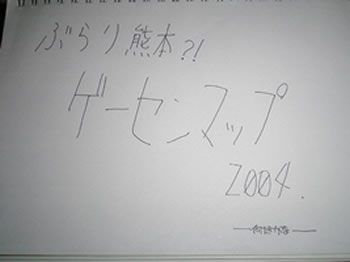 ぶらり熊本?!
ゲーセンマップ
2004.